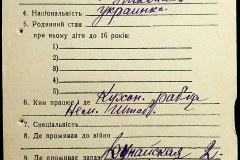 4. Національність украинка.
5. Родинний стан
при ньому діти до 16 років:
1)
2)
3)
4)
5)
6. Ким працює і де Кухон. рабоч
Нем. Штаб.
7. Спеціяльність
8. Де проживав до війни
9. Де проживає зараз Дунайская